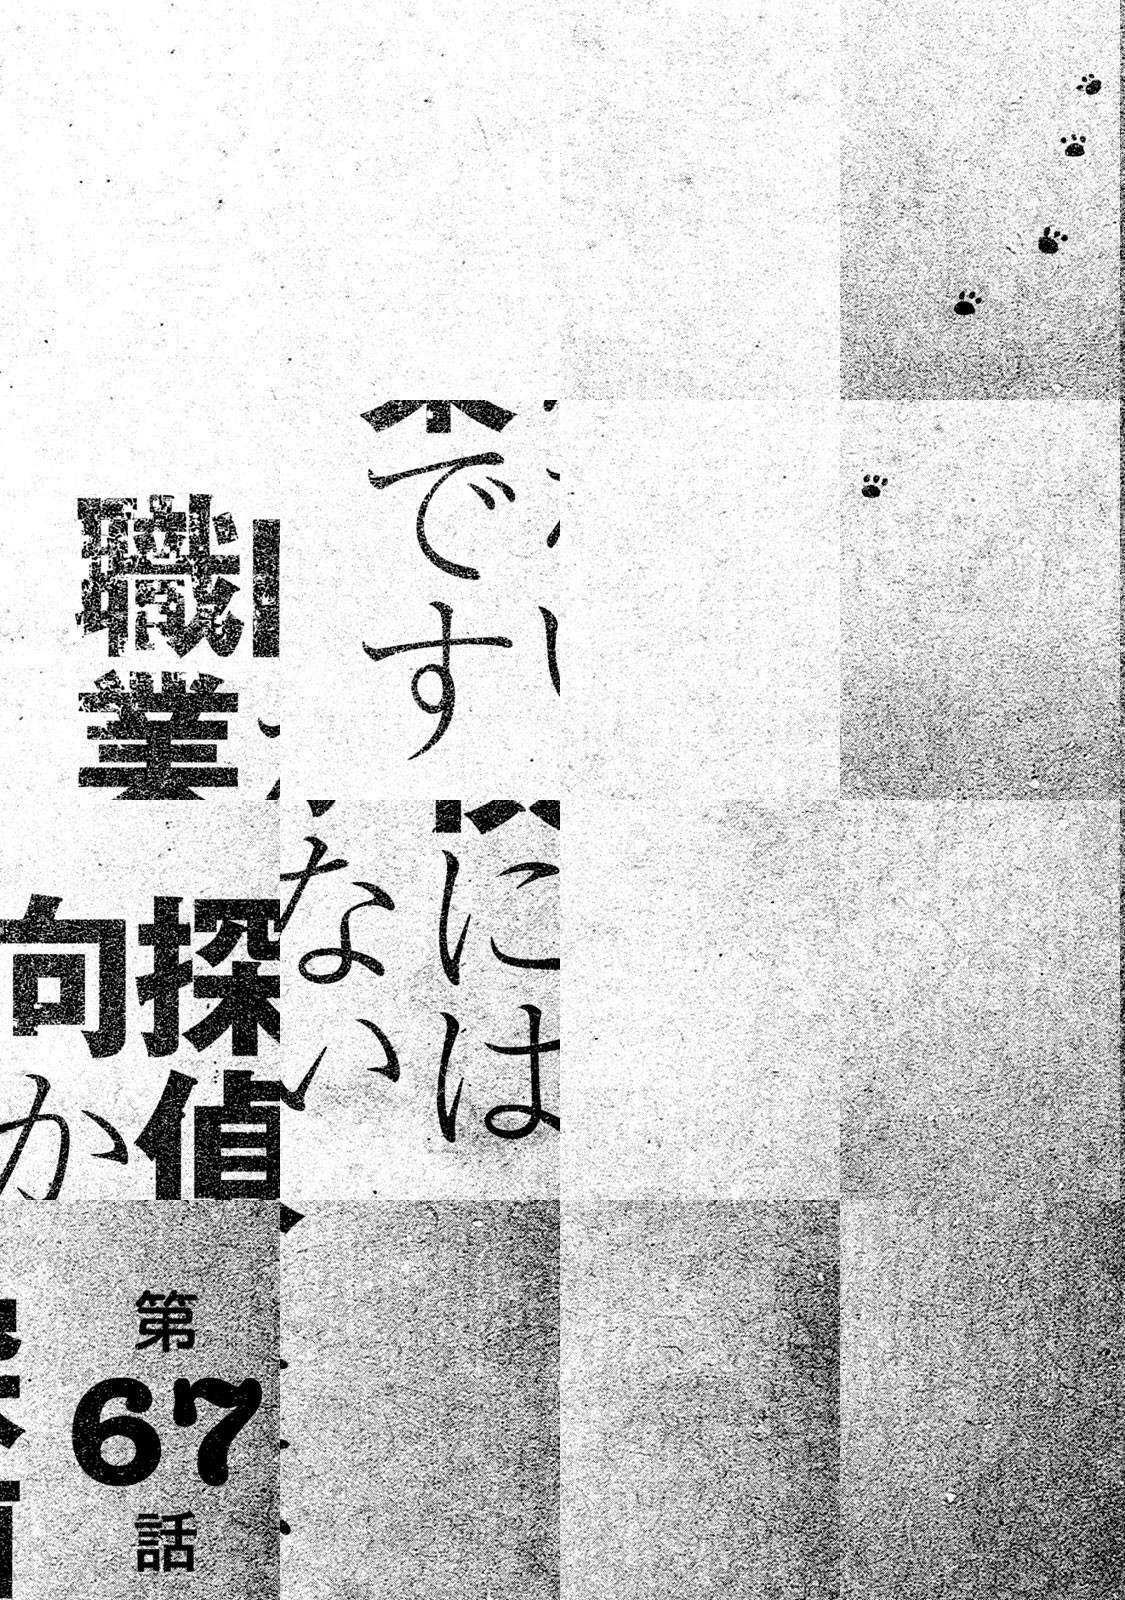 です
職業
には
ない
探偵
向か
第67話